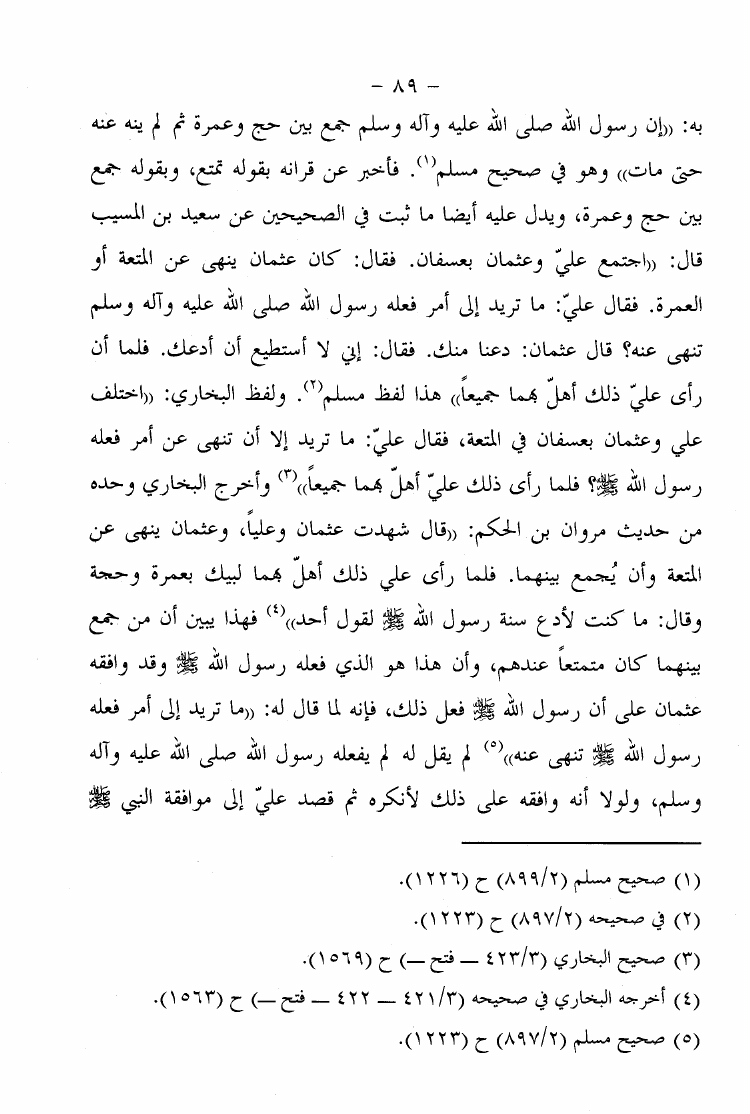 - ٨٩ -
به: ((إن رسول الله صلى الله عليه وآله وسلم جمع بين حج وعمرة ثم لم ينه عنه
حتى مات)) وهو في صحيح مسلم(١). فأخبر عن قرانه بقوله تمتع، وبقوله جمع
بين حج وعمرة، ويدل عليه أيضا ما ثبت في الصحيحين عن سعيد بن المسيب
قال: ((اجتمع عليّ وعثمان بعسفان. فقال: كان عثمان ينهى عن المتعة أو
العمرة. فقال عليّ: ما تريد إلى أمر فعله رسول الله صلى الله عليه وآله وسلم
تنهى عنه؟ قال عثمان: دعنا منك. فقال: إني لا أستطيع أن أدعك. فلما أن
رأى عليّ ذلك أهلّ بهما جميعاً)) هذا لفظ مسلم(٢). ولفظ البخاري: ((اختلف
علي وعثمان بعسفان في المتعة، فقال عليّ: ما تريد إلا أن تنهى عن أمر فعله
رسول الله ﷺ؟ فلما رأى ذلك عليّ أهلّ بهما جميعاً))(٣) وأخرج البخاري وحده
من حديث مروان بن الحكم: ((قال شهدت عثمان وعلياً، وعثمان ينهى عن
المتعة وأن يُجمع بينهما. فلما رأى علي ذلك أهلّ بهما لبيك بعمرة وحجة
وقال: ما كنت لأدع سنة رسول الله ﷺ لقول أحد))(٤) فهذا يبين أن من جمع
بينهما كان متمتعاً عندهم، وأن هذا هو الذي فعله رسول الله ﷺ وقد وافقه
عثمان على أن رسول الله ﷺ فعل ذلك، فإنه لما قال له: ((ما تريد إلى أمر فعله
رسول الله ﷺ تنهى عنه))(٥) لم يقل له لم يفعله رسول الله صلى الله عليه وآله
وسلم، ولولا أنه وافقه على ذلك لأنكره ثم قصد عليّ إلى موافقة النبي ﷺ
(١) صحيح مسلم (٨٩٩/٢) ح (١٢٢٦).
(٢) في صحيحه (٨٩٧/٢) ح (١٢٢٣).
(٣) صحيح البخاري (٤٢٣/٣ ــ فتح ــ) ح (١٥٦٩).
(٤) أخرجه البخاري في صحيحه (٤٢١/٣ ــ ٤٢٢ ــ فتح ــ) ح (١٥٦٣).
(٥) صحيح مسلم (٨٩٧/٢) ح (١٢٢٣).